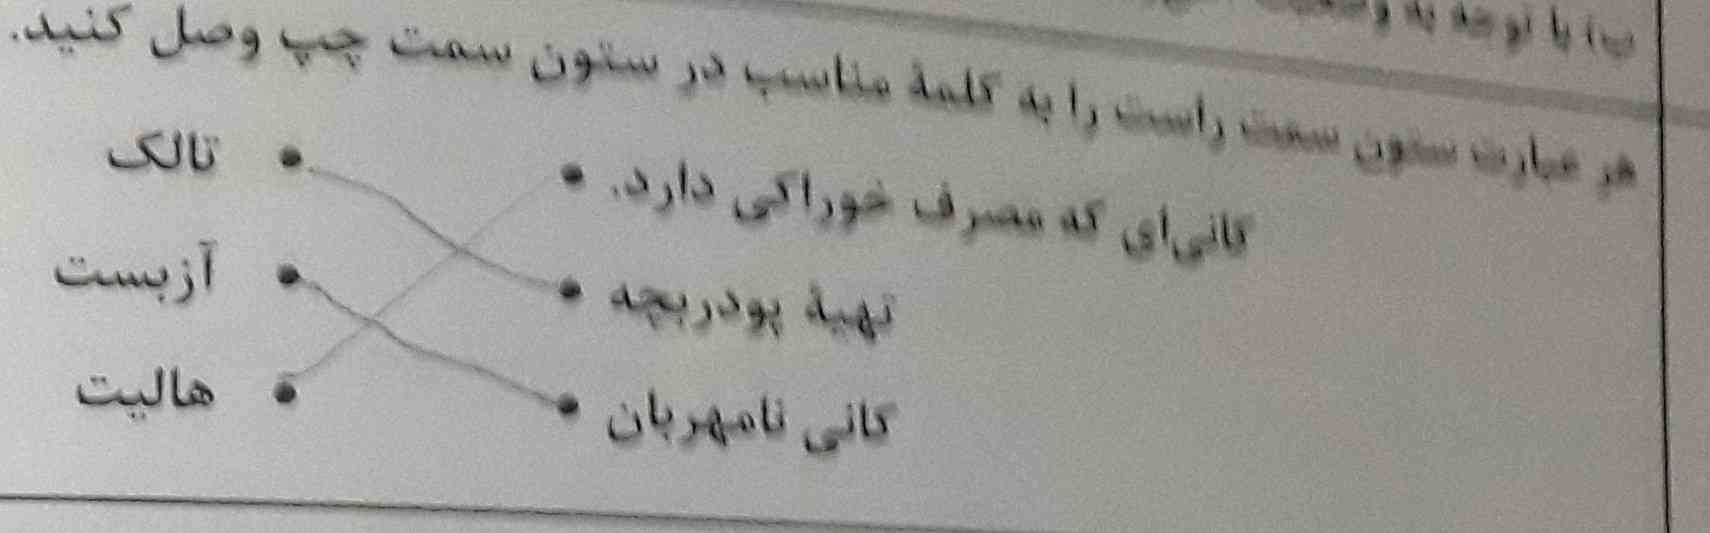 ب) با توجه به
هر عبارت ستون سمت راست را به کلمهٔ مناسب در ستون سمت چپ وصل کنید.
کانی‌ای که مصرف خوراکی دارد. • • تالک
تهیهٔ پودر بچه • • آزبست
کانی نامهربان • • هالیت